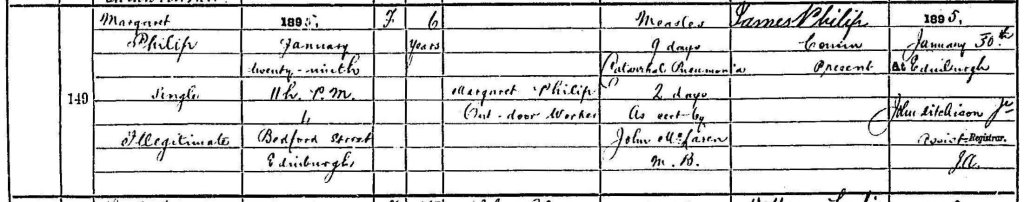 Margaret 1895, F. 6 Measles James Philip 1895,
Philip January years 9 days Cousin January 30th
twenty-ninth Catarrhal Pneumonia Present At Edinburgh
149 Single 11h. P.M. Margaret Philip 2 days
4 Out-door Worker As cert by John Aitchison Jr
Illegitimate Bedford Street John McLaren Assist. Registrar.
Edinburgh M. B. JA.